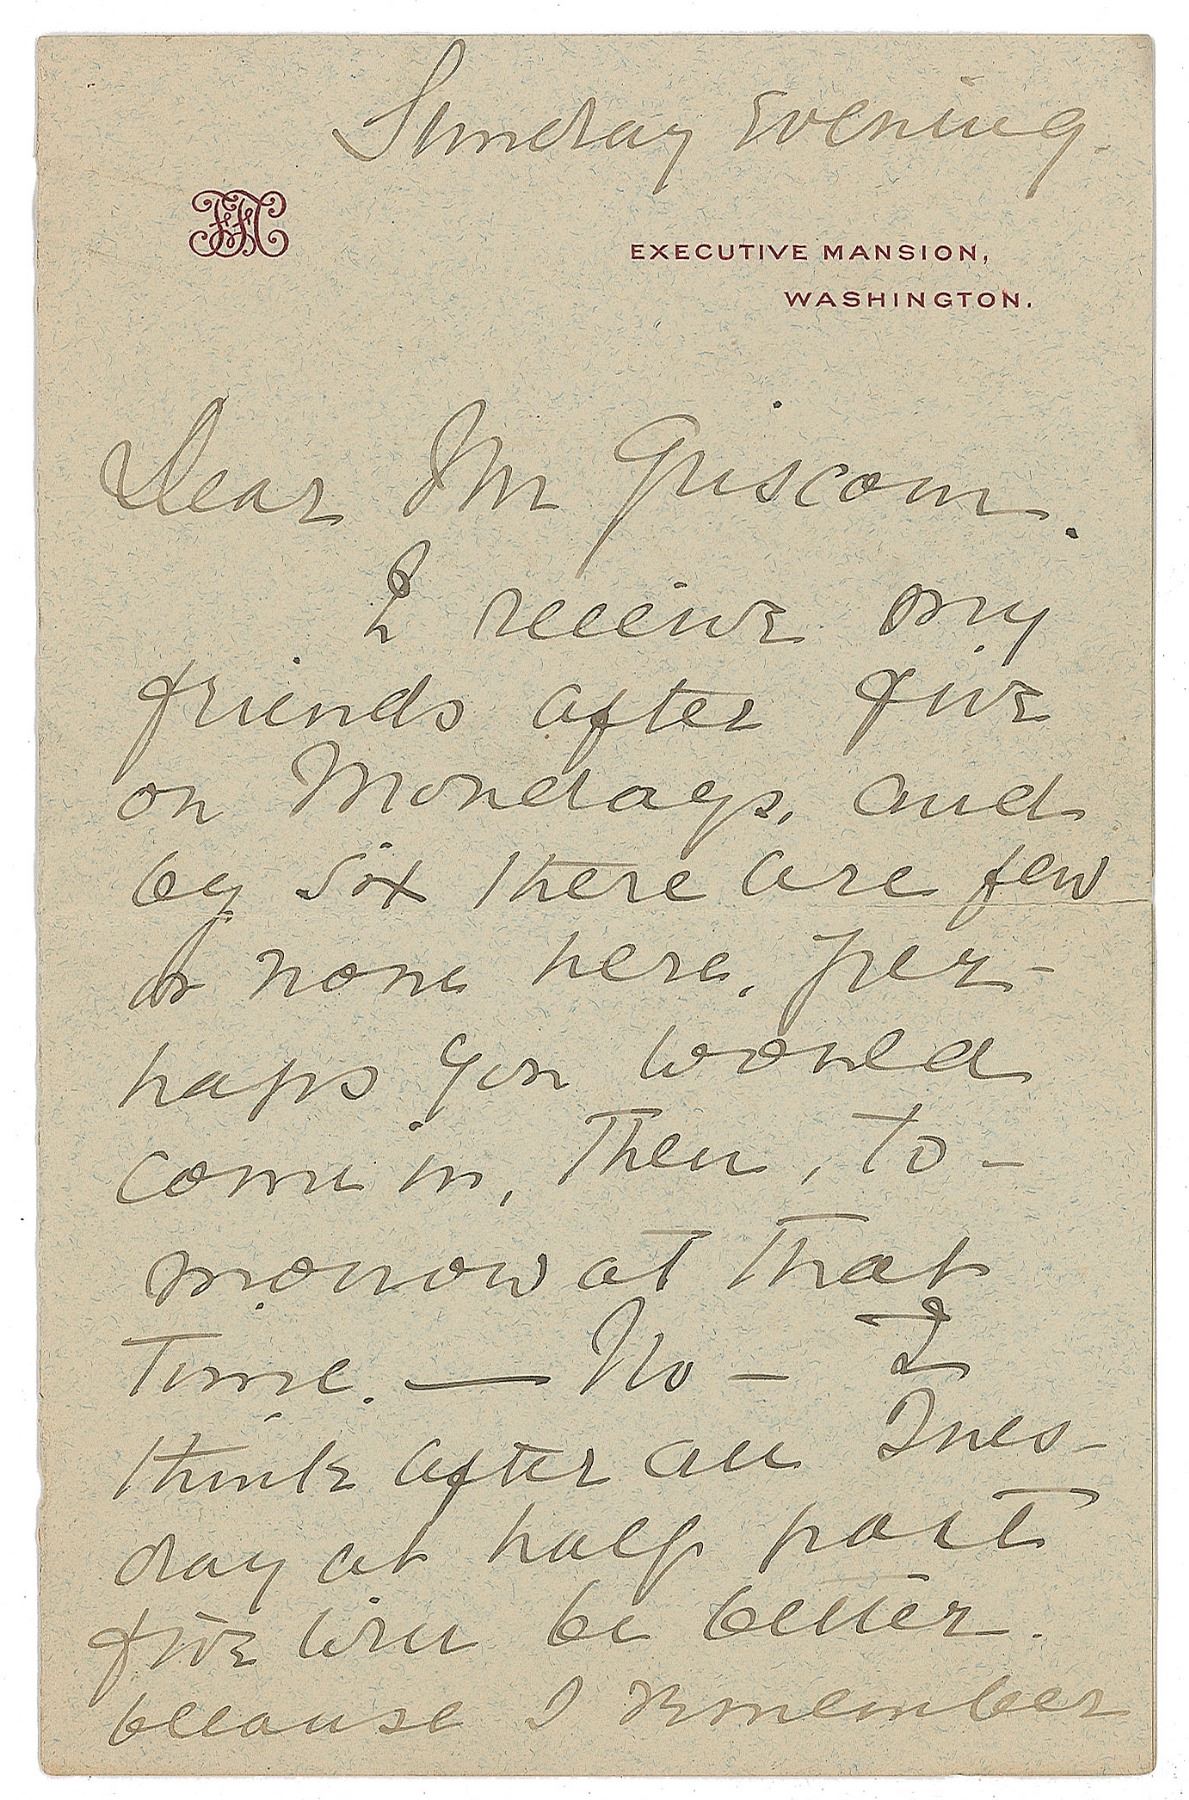 Sunday Evening.
EXECUTIVE MANSION,
WASHINGTON.
Dear Mr Griscom.
I receive my
friends after five
on Mondays, and
by six there are few
or none here, per-
haps you would
come in, then, to-
morrow at that
time. — No — I
think after all Tues-
day at half past
five will be better.
because I remember